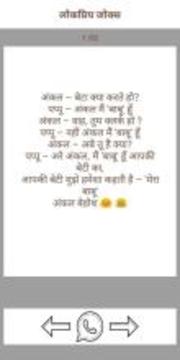 लोकप्रिय जोक्स
अंकल – बेटा क्या करते हो?
पप्पू – अंकल मैं 'बाबू' हूँ
अंकल – वाह, तुम क्लर्क हो ?
पप्पू – नहीं अंकल मैं 'बाबू' हूँ
अंकल – अबे तू है क्या?
पप्पू – अरे अंकल, मैं 'बाबू' हूँ आपकी
बेटी का,
आपकी बेटी मुझे हमेशा कहती है – 'मेरा
बाबू'
अंकल बेहोश 😀 😀